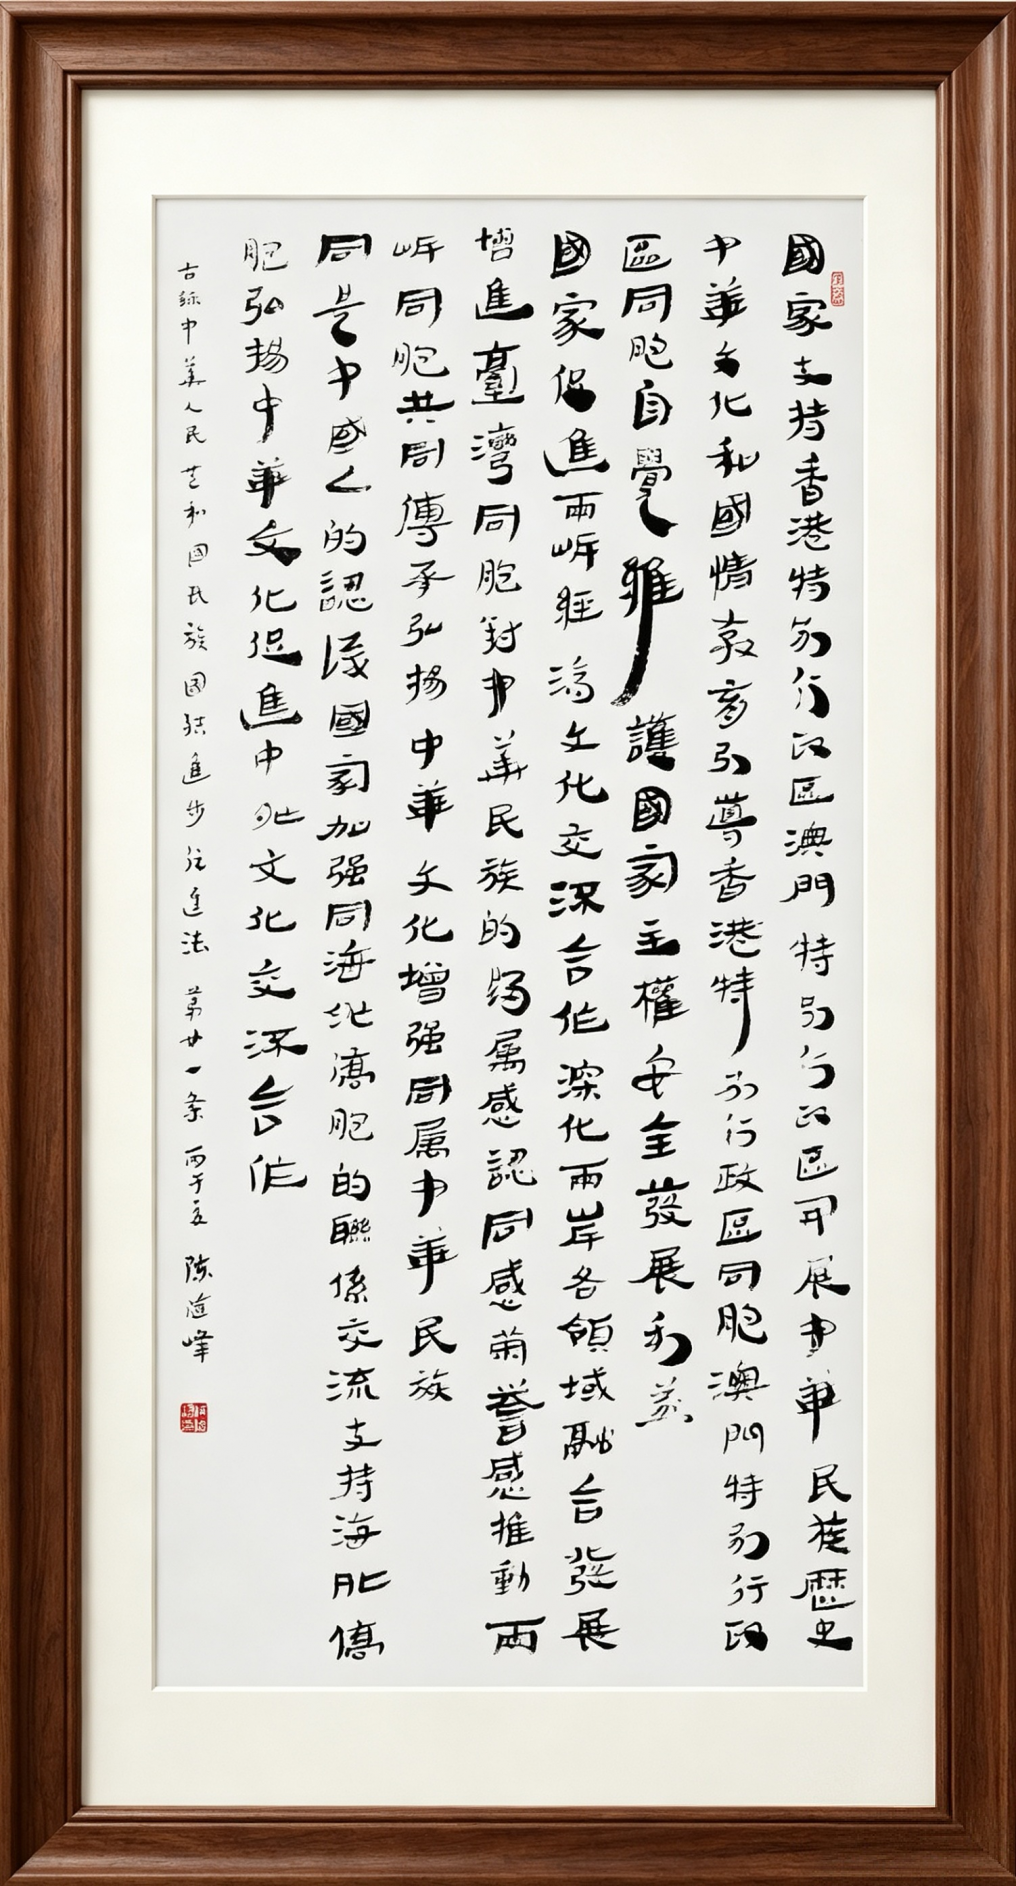 國家支持香港特別行政區澳門特別行政區開展中華民族歷史
中華文化和國情教育引導香港特別行政區同胞澳門特別行政
區同胞自覺維護國家主權安全發展利益
國家促進兩岍經濟文化交流合作深化兩岸各領域融合發展
增進臺灣同胞對中華民族的歸属感認同感榮譽感推動兩
岍同胞共同傳承弘揚中華文化增强同属中華民族
同是中國人的認識國家加强同海外僑胞的聯係交流支持海外僑
胞弘揚中華文化促進中外文化交流合作
右錄中華人民共和國民族团结進步促進法 第廿一条 丙午夏 陈道峰